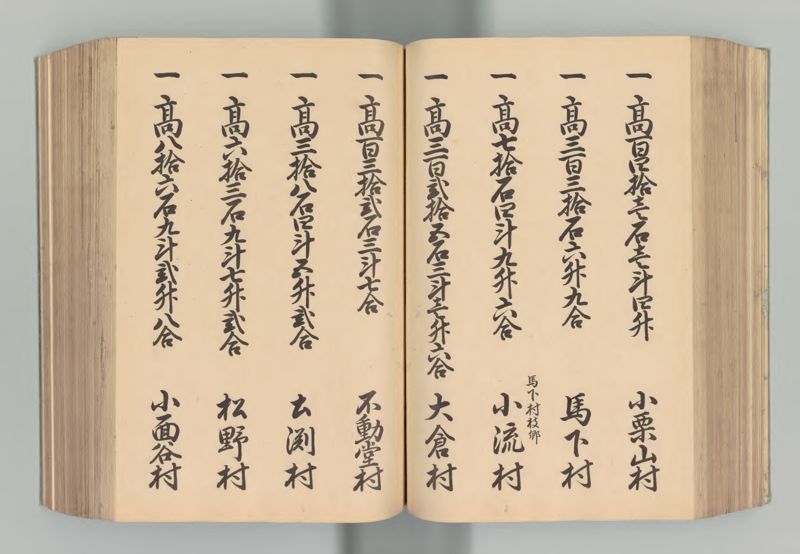 一 高百四拾壱石壱斗四升 小栗山村
一 高三百三拾石六升九合 馬下村
馬下村枝郷
一 高七拾石四斗九升六合 小流村
一 高三百弐拾五石三斗壱升六合 大倉村
一 高百三拾弐石三斗七合 不動堂村
一 高三拾八石四斗五升弐合 土渕村
一 高六拾三石九斗七升弐合 松野村
一 高八拾六石九斗弐升八合 小面谷村